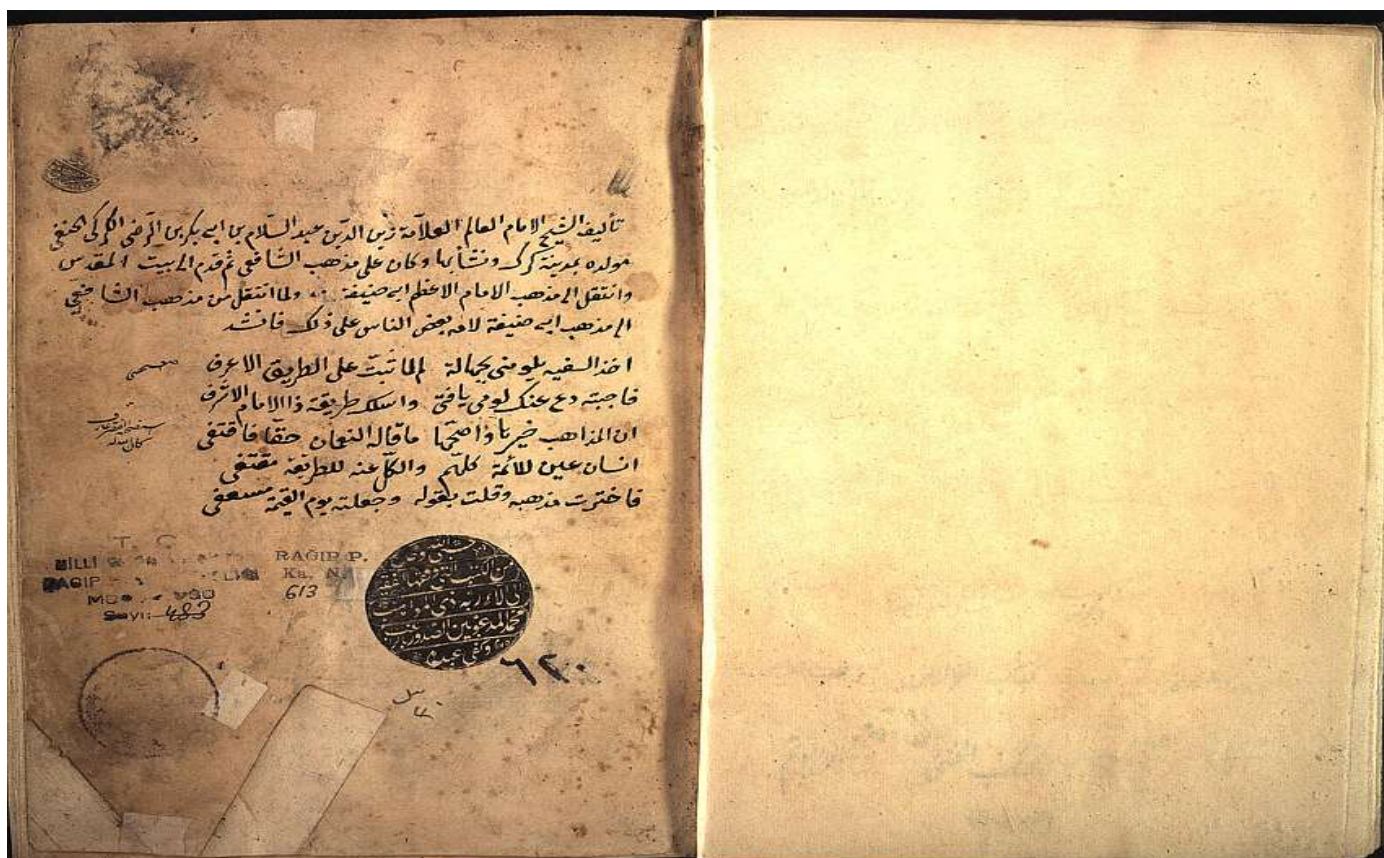 تأليف الشيخ الامام العالم العلامة زين الدين عبد السلام بن ابي بكر بن الرضى الكركى الحنفى
مولده بمدينة كرك ونشأ بها وكان على مذهب الشافعى ثم قدم الى بيت المقدس
وانتقل الى مذهب الامام الاعظم ابى حنيفة ولما انتقل من مذهب الشافعى
الى مذهب ابى حنيفة لامه بعض الناس على ذلك فانشد
اخذ السفيه يلومنى بجهالة لما ثبت على الطريق الاعرف
فاجبته دع عنك لومى يا فتى واسلك طريقة ذا الامام الاشرف
ان المذاهب خيرها واصحها ما قاله النعمان حقا فاقتفى
انسان عين للائمة كلهم والكل عنه للطريقة مقتفى
فاخترت مذهبه وقلت بقوله وجعلته يوم القيمة مسعفى
T. C.
MİLLİ
RAGIP
Sayı: 483
RAĞIP P.
Ka. N.
613
حسبى الله وحده
من الكتب التى وقفها الفقير
الى آلاء ربه ذى المواهب
محمد المدعو بين الصدور بالراغب
وكفى عبده
٦٢٠